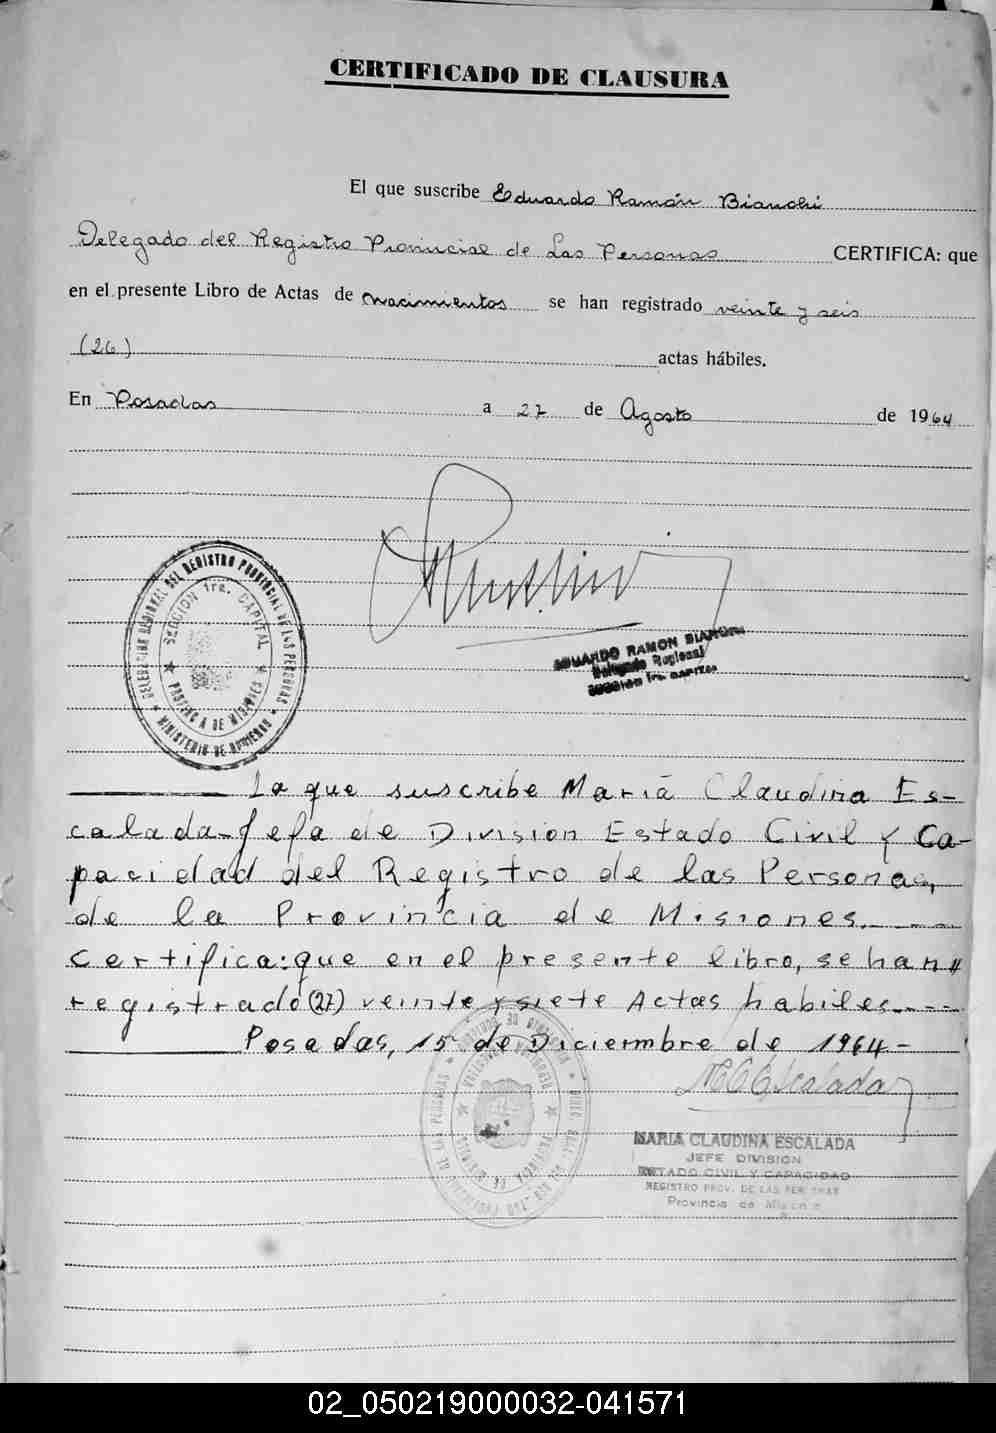 CERTIFICADO DE CLAUSURA
El que suscribe Eduardo Ramón Bianchi
Delegado del Registro Provincial de Las Personas CERTIFICA: que
en el presente Libro de Actas de Nacimientos se han registrado veinte y seis
(26) actas hábiles.
En Posadas a 27 de Agosto de 1964
DELEGACION REGIONAL DEL REGISTRO PROVINCIAL DE LAS PERSONAS
SECCION 1ra. CAPITAL
PROVINCIA DE MISIONES
MINISTERIO DE GOBIERNO
EDUARDO RAMON BIANCHI
Delegado Regional
SECCION 1ra. CAPITAL
La que suscribe María Claudina Es-
calada-Jefa de Division Estado Civil y Ca-
pacidad del Registro de las Personas,
de la Provincia de Misiones.
certifica: que en el presente libro, se han
registrado (27) veinte y siete Actas habiles.
Posadas, 15 de Diciembre de 1964.-
MCEscalada
MARIA CLAUDINA ESCALADA
JEFE DIVISION
ESTADO CIVIL Y CAPACIDAD
REGISTRO PROV. DE LAS PERSONAS
Provincia de Misiones
02_050219000032-041571